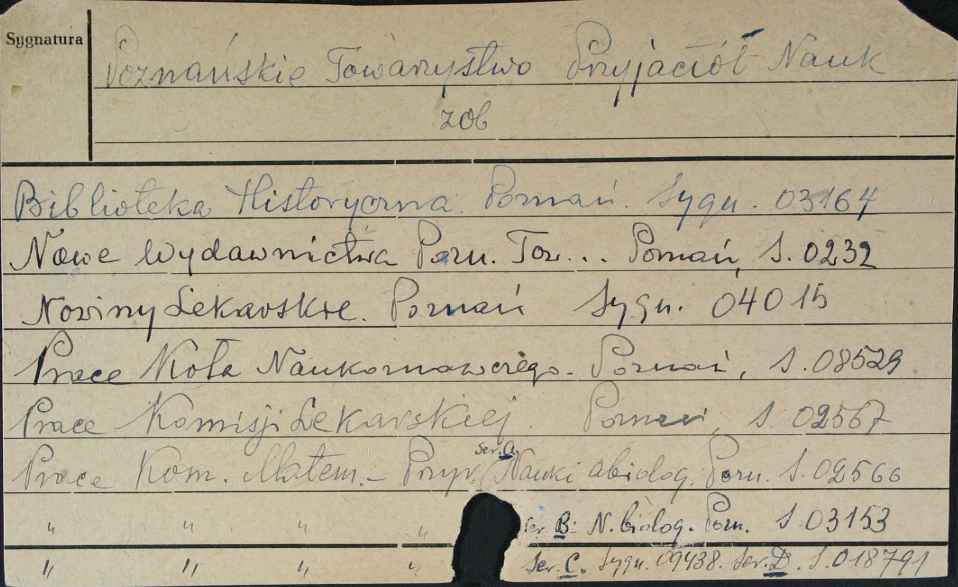 Sygnatura
Poznańskie Towarzystwo Przyjaciół Nauk
zob
Biblioteka Historyczna. Poznań. Sygn. 03164
Nowe Wydawnictwa Pozn. Tow... Poznań, S. 0232
Nowiny Lekarskie. Poznań Sygn. 04015
Prace Koła Naukoznawczego. Poznań, S. 08529
Prace Komisji Lekarskiej. Poznań, S. 02567
Prace Kom. Matem.- Przyr. Ser. A. Nauki abiolog. Pozn. S. 02566
" " " " Ser. B: N. biolog. Pozn. S 03153
" " " " Ser. C. Sygn. 09438. Ser. D. S. 018791